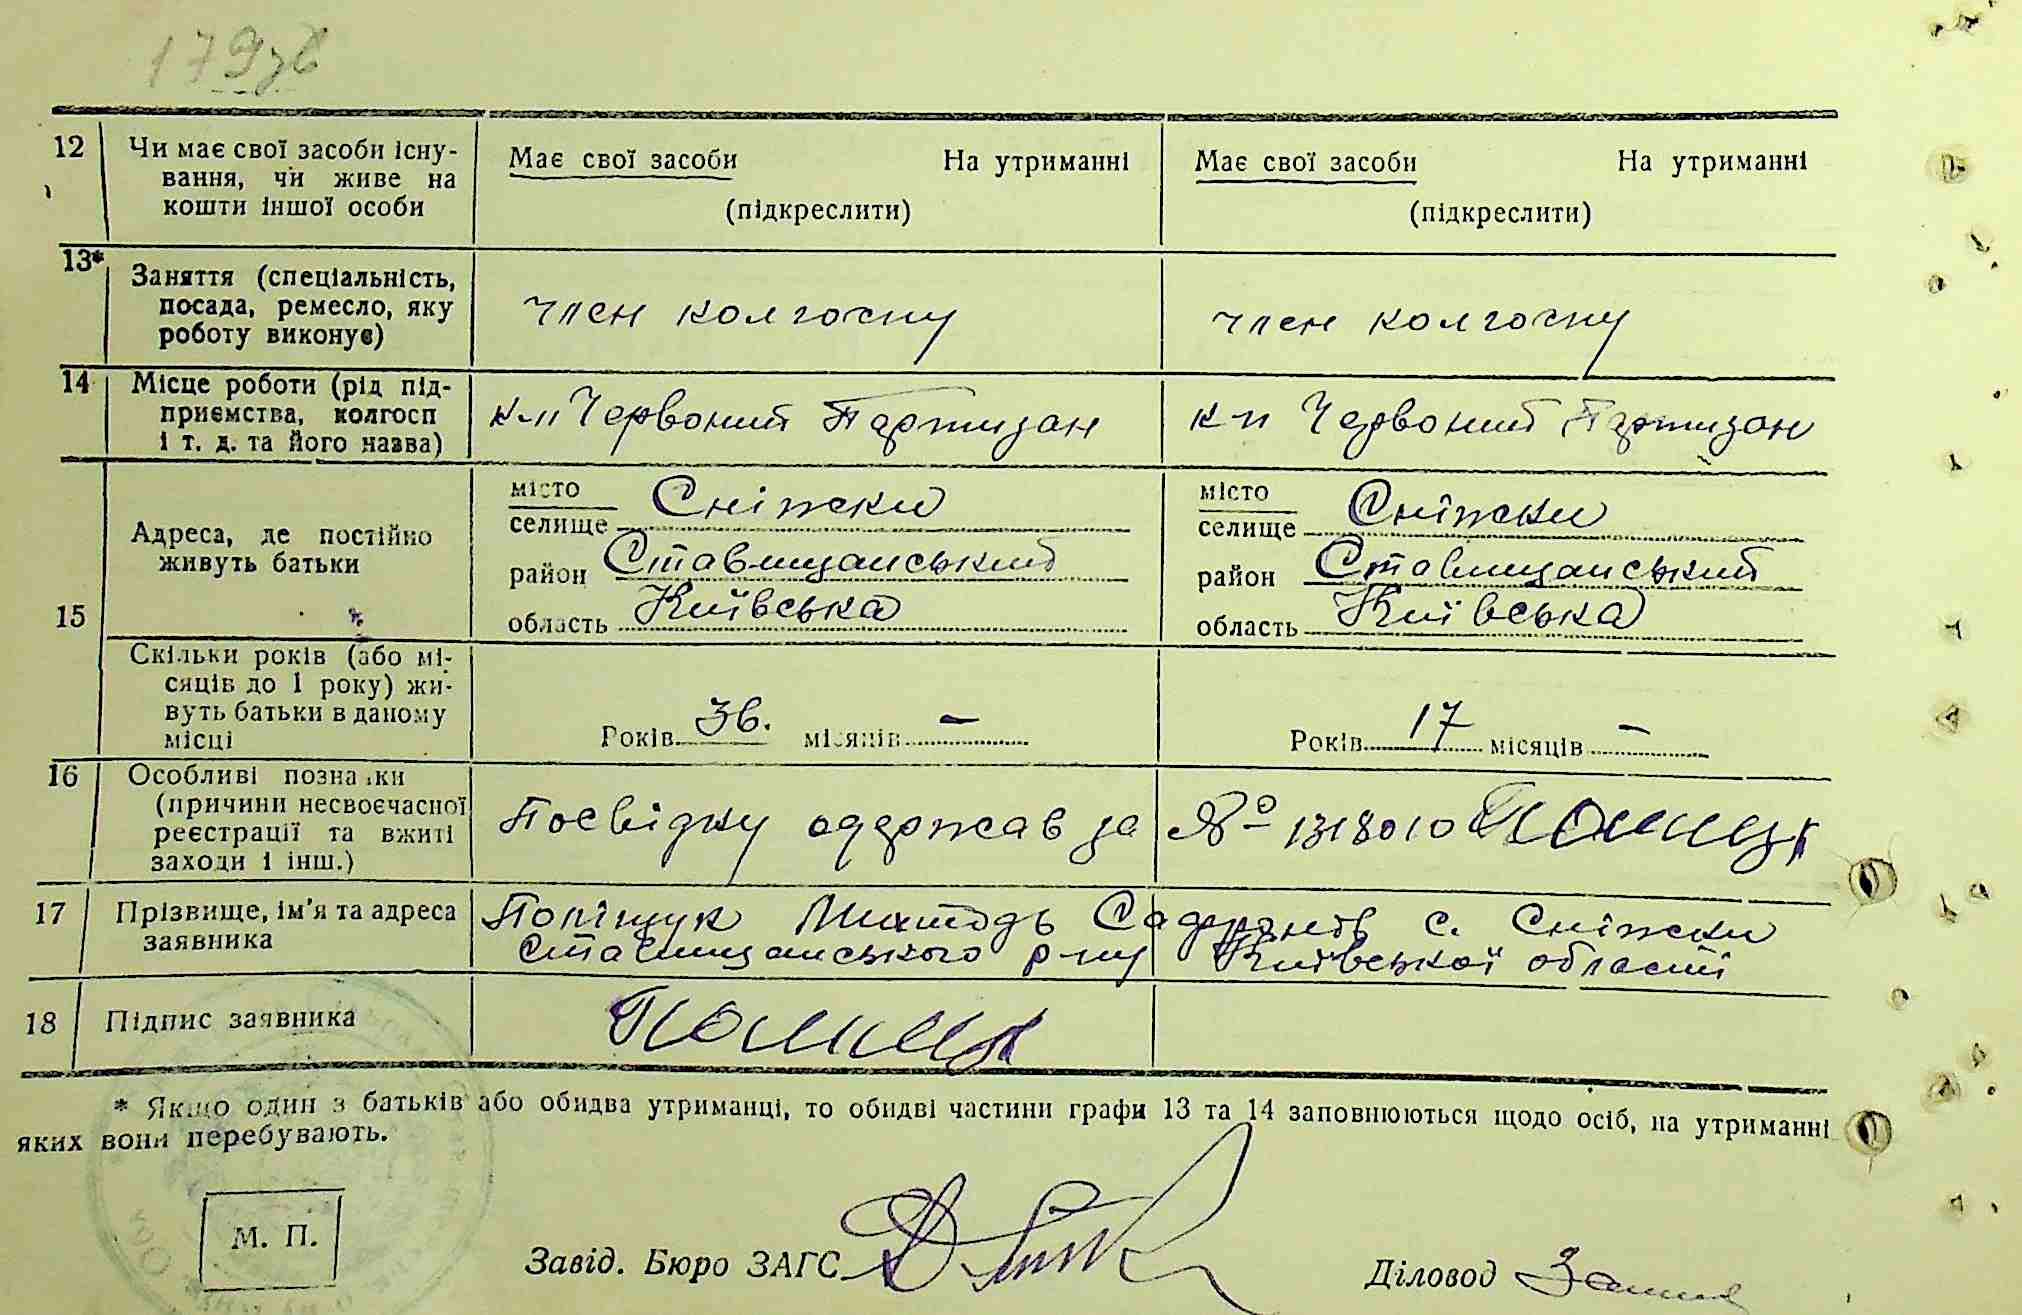 179зв
12 Чи має свої засоби існу-
вання, чи живе на
кошти іншої особи
Має свої засоби На утриманні
(підкреслити)
Має свої засоби На утриманні
(підкреслити)
13* Заняття (спеціальність,
посада, ремесло, яку
роботу виконує)
член колгоспу
член колгоспу
14 Місце роботи (рід під-
приємства, колгосп
і т. д. та його назва)
к-п Червоний Партизан
к-п Червоний Партизан
15
Адреса, де постійно
живуть батьки
місто
селище Сніжки
район Ставищанський
область Київська
місто
селище Сніжки
район Ставищанський
область Київська
Скільки років (або мі-
сяців до 1 року) жи-
вуть батьки в даному
місці
Років 36. місяців —
Років 17 місяців —
16 Особливі познаки
(причини несвоєчасної
реєстрації та вжиті
заходи і інш.)
Посвідку одержав за № 1318010
17 Прізвище, ім'я та адреса
заявника
Поліщук с. Сніжки
Ставищанського р-ну Київської області
18 Підпис заявника
* Якщо один з батьків або обидва утриманці, то обидві частини графи 13 та 14 заповнюються щодо осіб, на утриманні
яких вони перебувають.
М. П.
Завід. Бюро ЗАГС
Діловод